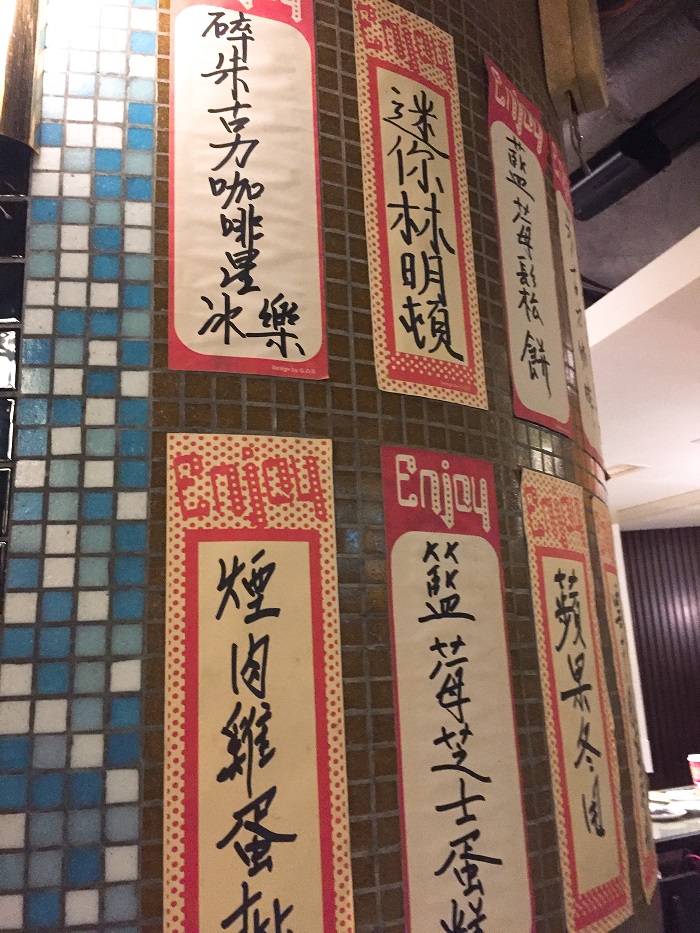 Enjoy
碎朱古力咖啡星冰樂
Design by G.O.D.
Enjoy
迷你林明頓
Enjoy
藍莓鬆餅
Enjoy
煙肉雞蛋批
Enjoy
籃莓芝士蛋糕
Enjoy
蘋果冬甩